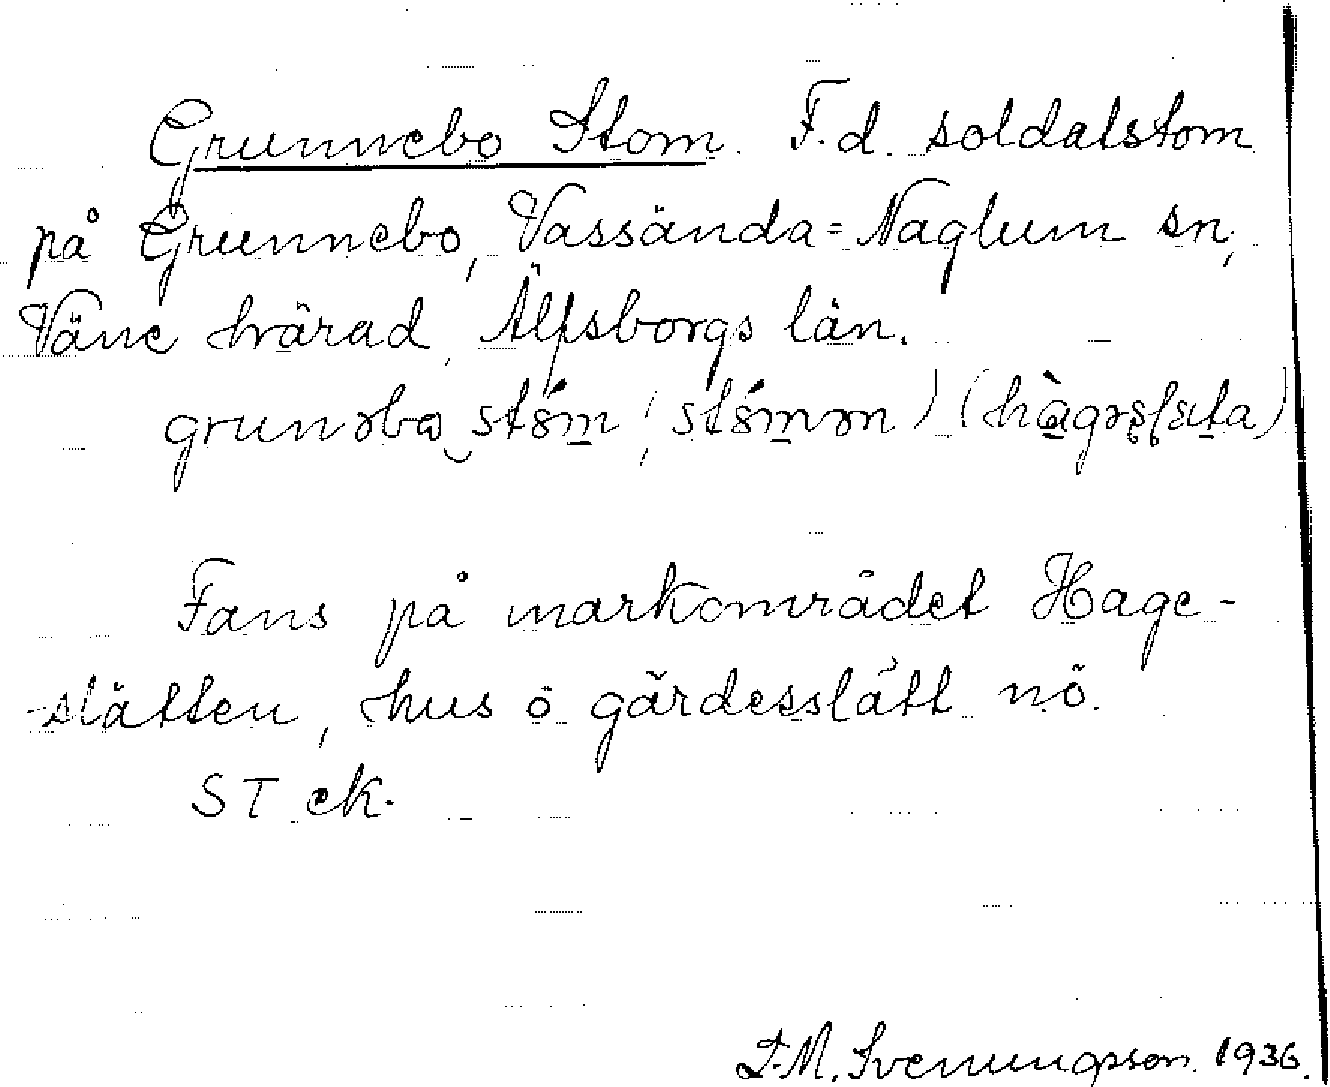 Grunnebo Stom. F.d. soldatstom
på Grunnebo, Vassända=Naglum sn,
Väne härad, Älfsborgs län.
grunəbo
Fans på markområdet Hage-
-slätten, hus o gärdesslätt nö.
ST ek.
D.M. Svenungsson 1936.